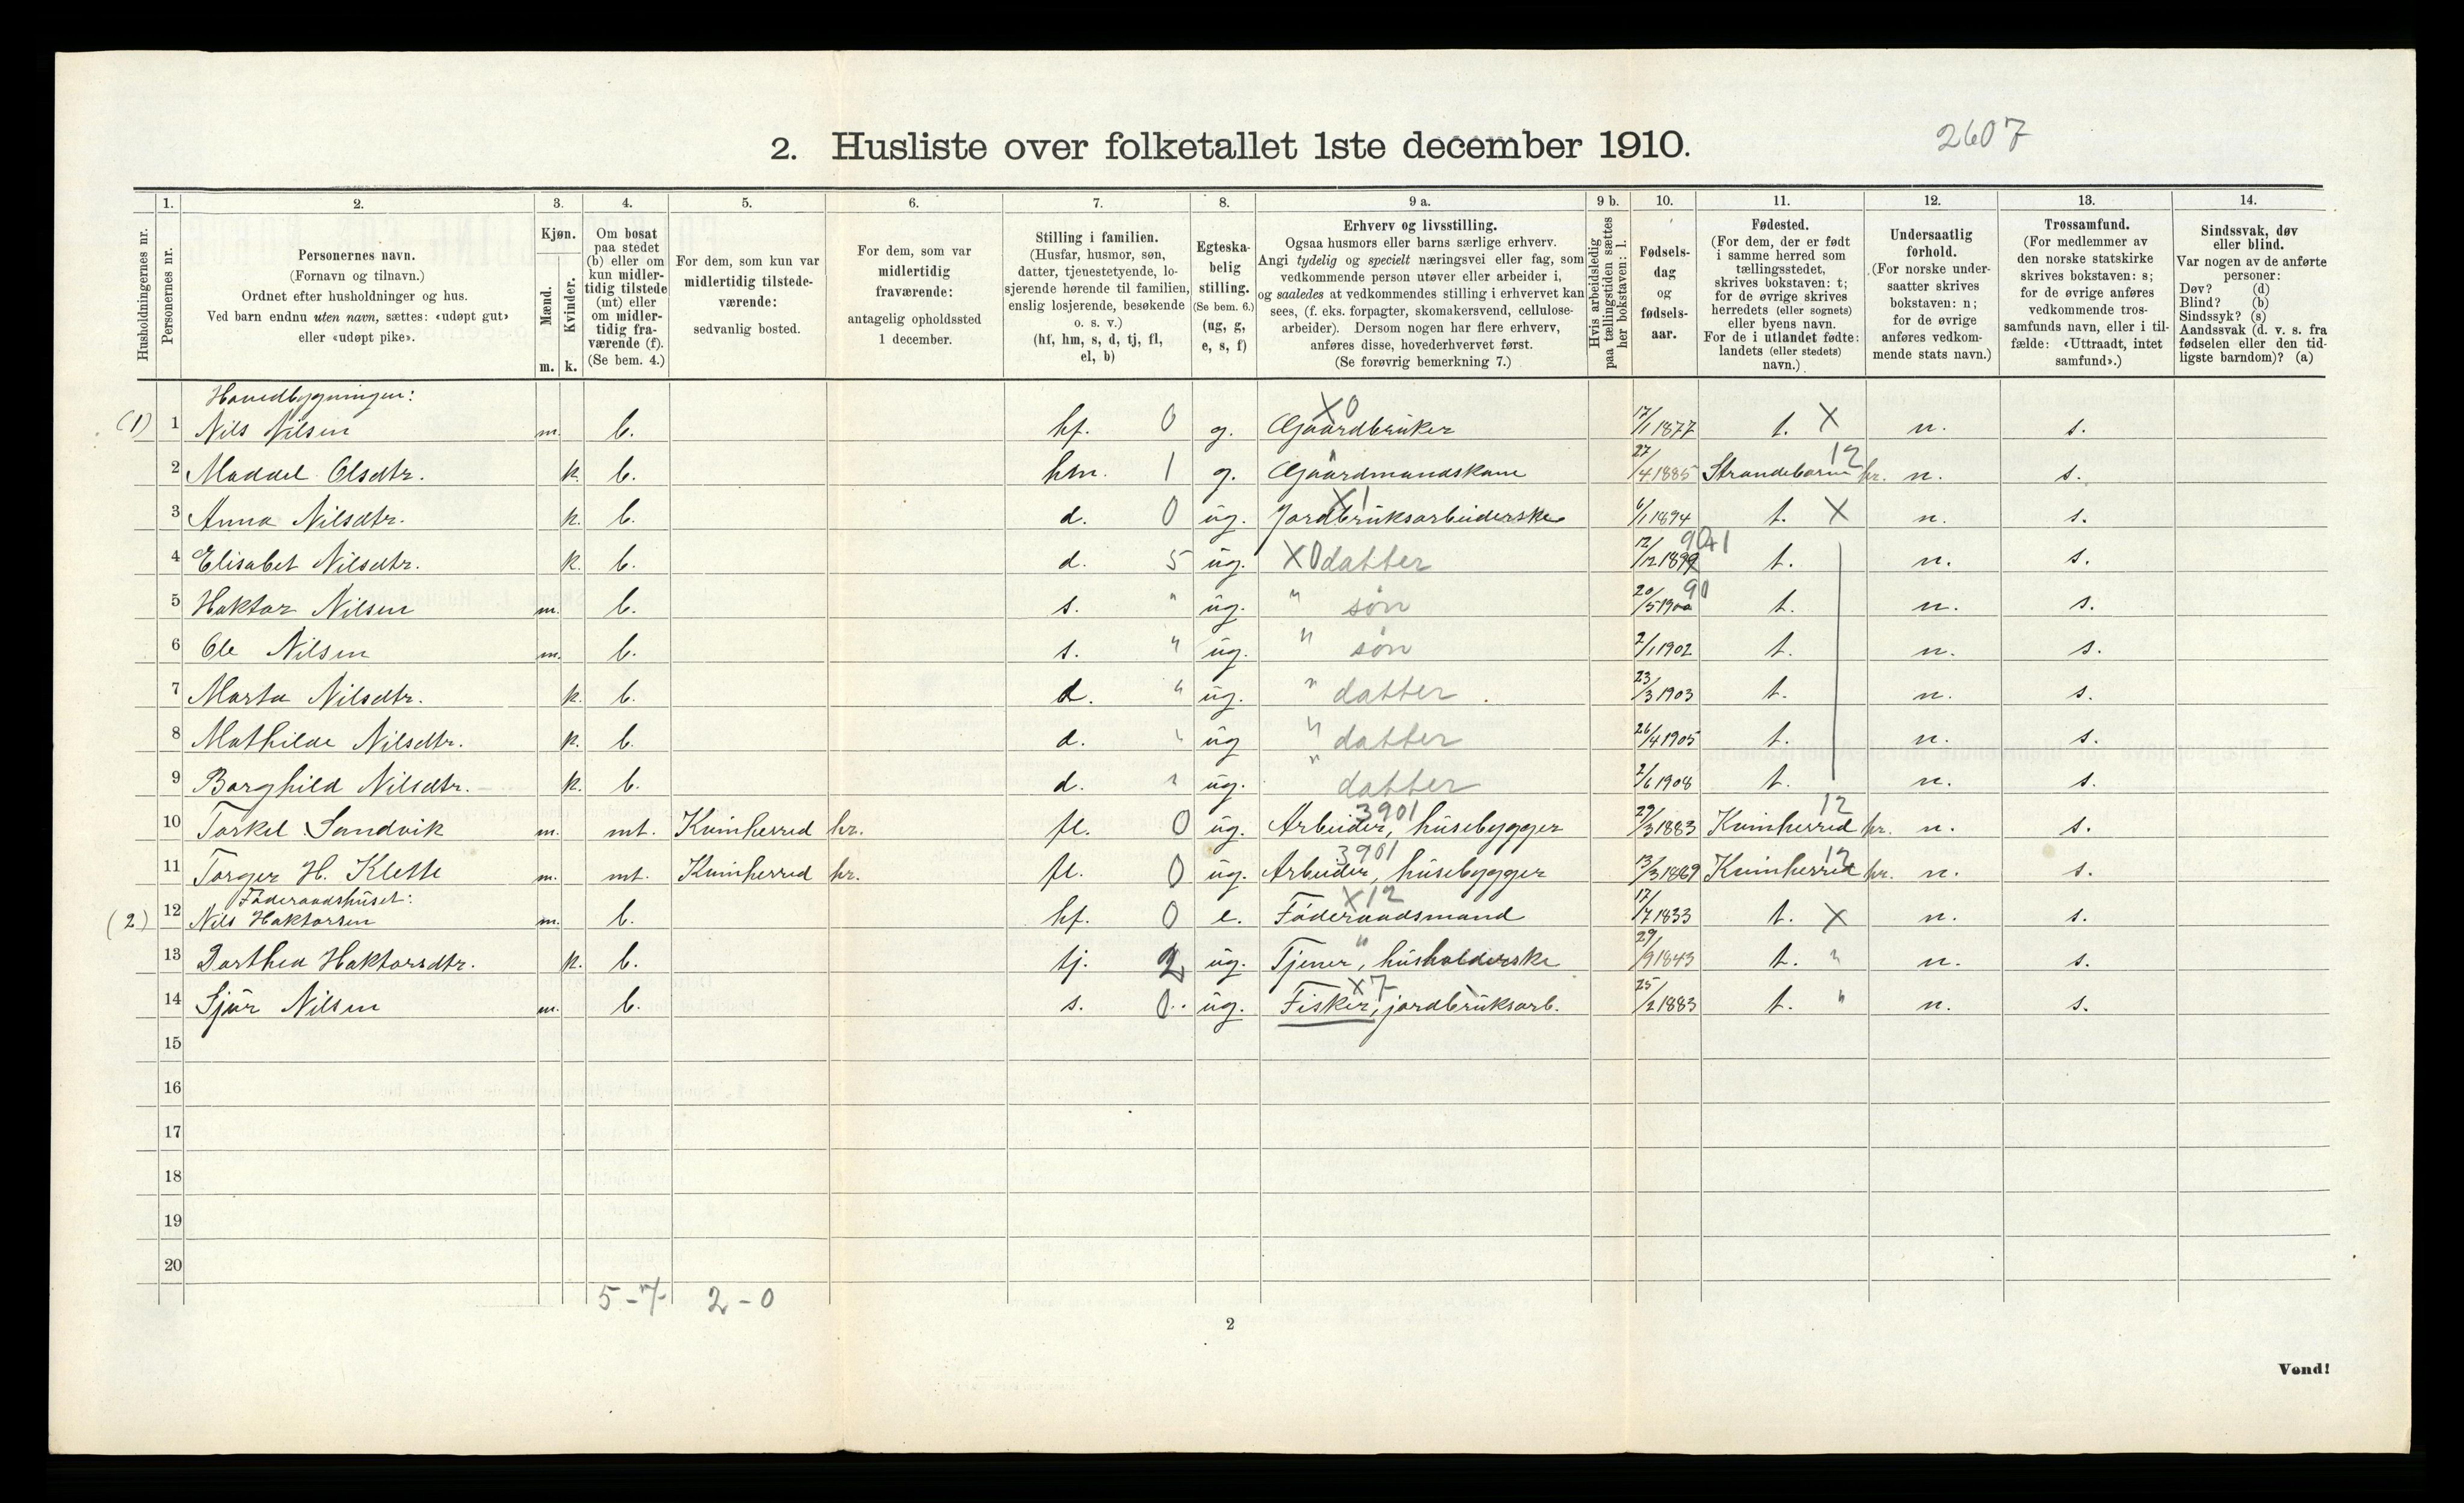 2. Husliste over folketallet 1ste december 1910.
2607
Husholdningernes nr.
1. Personernes nr.
2. Personernes navn.
(Fornavn og tilnavn.)
Ordnet efter husholdninger og hus.
Ved barn endnu uten navn, sættes: «udøpt gut»
eller «udøpt pike».
3. Kjøn.
Mænd. m.
Kvinder. k.
4. Om bosat
paa stedet
(b) eller om
kun midler-
tidig tilstede
(mt) eller
om midler-
tidig fra-
værende (f).
(Se bem. 4.)
5. For dem, som kun var
midlertidig tilstede-
værende:
sedvanlig bosted.
6. For dem, som var
midlertidig
fraværende:
antagelig opholdssted
1 december.
7. Stilling i familien.
(Husfar, husmor, søn,
datter, tjenestetyende, lo-
sjerende hørende til familien,
enslig losjerende, besøkende
o. s. v.)
(hf, hm, s, d, tj, fl,
el, b)
8. Egteska-
belig
stilling.
(Se bem. 6.)
(ug, g,
e, s, f)
9 a. Erhverv og livsstilling.
Ogsaa husmors eller barns særlige erhverv.
Angi tydelig og specielt næringsvei eller fag, som
vedkommende person utøver eller arbeider i,
og saaledes at vedkommendes stilling i erhvervet kan
sees, (f. eks. forpagter, skomakersvend, cellulose-
arbeider). Dersom nogen har flere erhverv,
anføres disse, hovederhvervet først.
(Se forøvrig bemerkning 7.)
9 b. Hvis arbeidsledig
paa tællingstiden sættes
her bokstaven: l.
10. Fødsels-
dag
og
fødsels-
aar.
11. Fødested.
(For dem, der er født
i samme herred som
tællingsstedet,
skrives bokstaven: t;
for de øvrige skrives
herredets (eller sognets)
eller byens navn.
For de i utlandet fødte:
landets (eller stedets)
navn.)
12. Undersaatlig
forhold.
(For norske under-
saatter skrives
bokstaven: n;
for de øvrige
anføres vedkom-
mende stats navn.)
13. Trossamfund.
(For medlemmer av
den norske statskirke
skrives bokstaven: s;
for de øvrige anføres
vedkommende tros-
samfunds navn, eller i til-
fælde: «Uttraadt, intet
samfund».)
14. Sindssvak, døv
eller blind.
Var nogen av de anførte
personer:
Døv? (d)
Blind? (b)
Sindssyk? (s)
Aandssvak (d. v. s. fra
fødselen eller den tid-
ligste barndom)? (a)
Hovedbygningen:
(1) 1 Nils Nilsen m. b. hf. 0 g. X0 Gaardbruker 17/1 1877 t. X n. s.
2 Maddel Olsdtr. k. b. hm. 1 g. " Gaardmandskone 27/4 1885 Strandebarm hr. 12 n. s.
3 Anna Nilsdtr. k. b. d. 0 ug. X1 Jordbruksarbeiderske 6/1 1894 t. X n. s.
4 Elisabet Nilsdtr. k. b. d. 5 ug. X0 datter 12/12 1899 9041 t. n. s.
5 Haktor Nilsen m. b. s. " ug. " søn 20/5 1900 90 t. n. s.
6 Ole Nilsen m. b. s. " ug. " søn 2/1 1902 t. n. s.
7 Marta Nilsdtr. k. b. d. " ug. " datter 23/3 1903 t. n. s.
8 Mathilde Nilsdtr. k. b. d. " ug " datter 26/4 1905 t. n. s.
9 Borghild Nilsdtr. k. b. d. " ug. " datter 2/6 1908 t. n. s.
10 Torkel Sandvik m. mt. Kvinherred hr. fl. 0 ug. 3901 Arbeider, husebygger 29/3 1883 Kvinherred hr. 12 n. s.
11 Torger H. Klette m. mt. Kvinherred hr. fl. 0 ug. 3901 Arbeider, husebygger 13/3 1869 Kvinherred hr. 12 n. s.
Føderaadshuset:
(2) 12 Nils Haktorsen m. b. hf. 0 e. X12 Føderaadsmand 17/7 1833 t. X n. s.
13 Dorthea Haktorsdtr. k. b. tj. 2 ug. " Tjener, husholderske 29/9 1843 t. " n. s.
14 Sjur Nilsen m. b. s. 0 ug. X7 Fisker, jordbruksarb. 25/2 1883 t. " n. s.
15
16
17
18
19
20
5-7- 2-0
2
Vend!